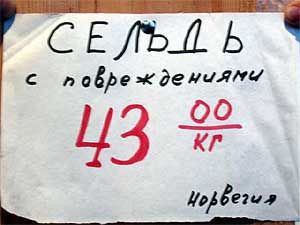 СЕЛЬДЬ
с повреждениями
43 00/кг
Норвегия